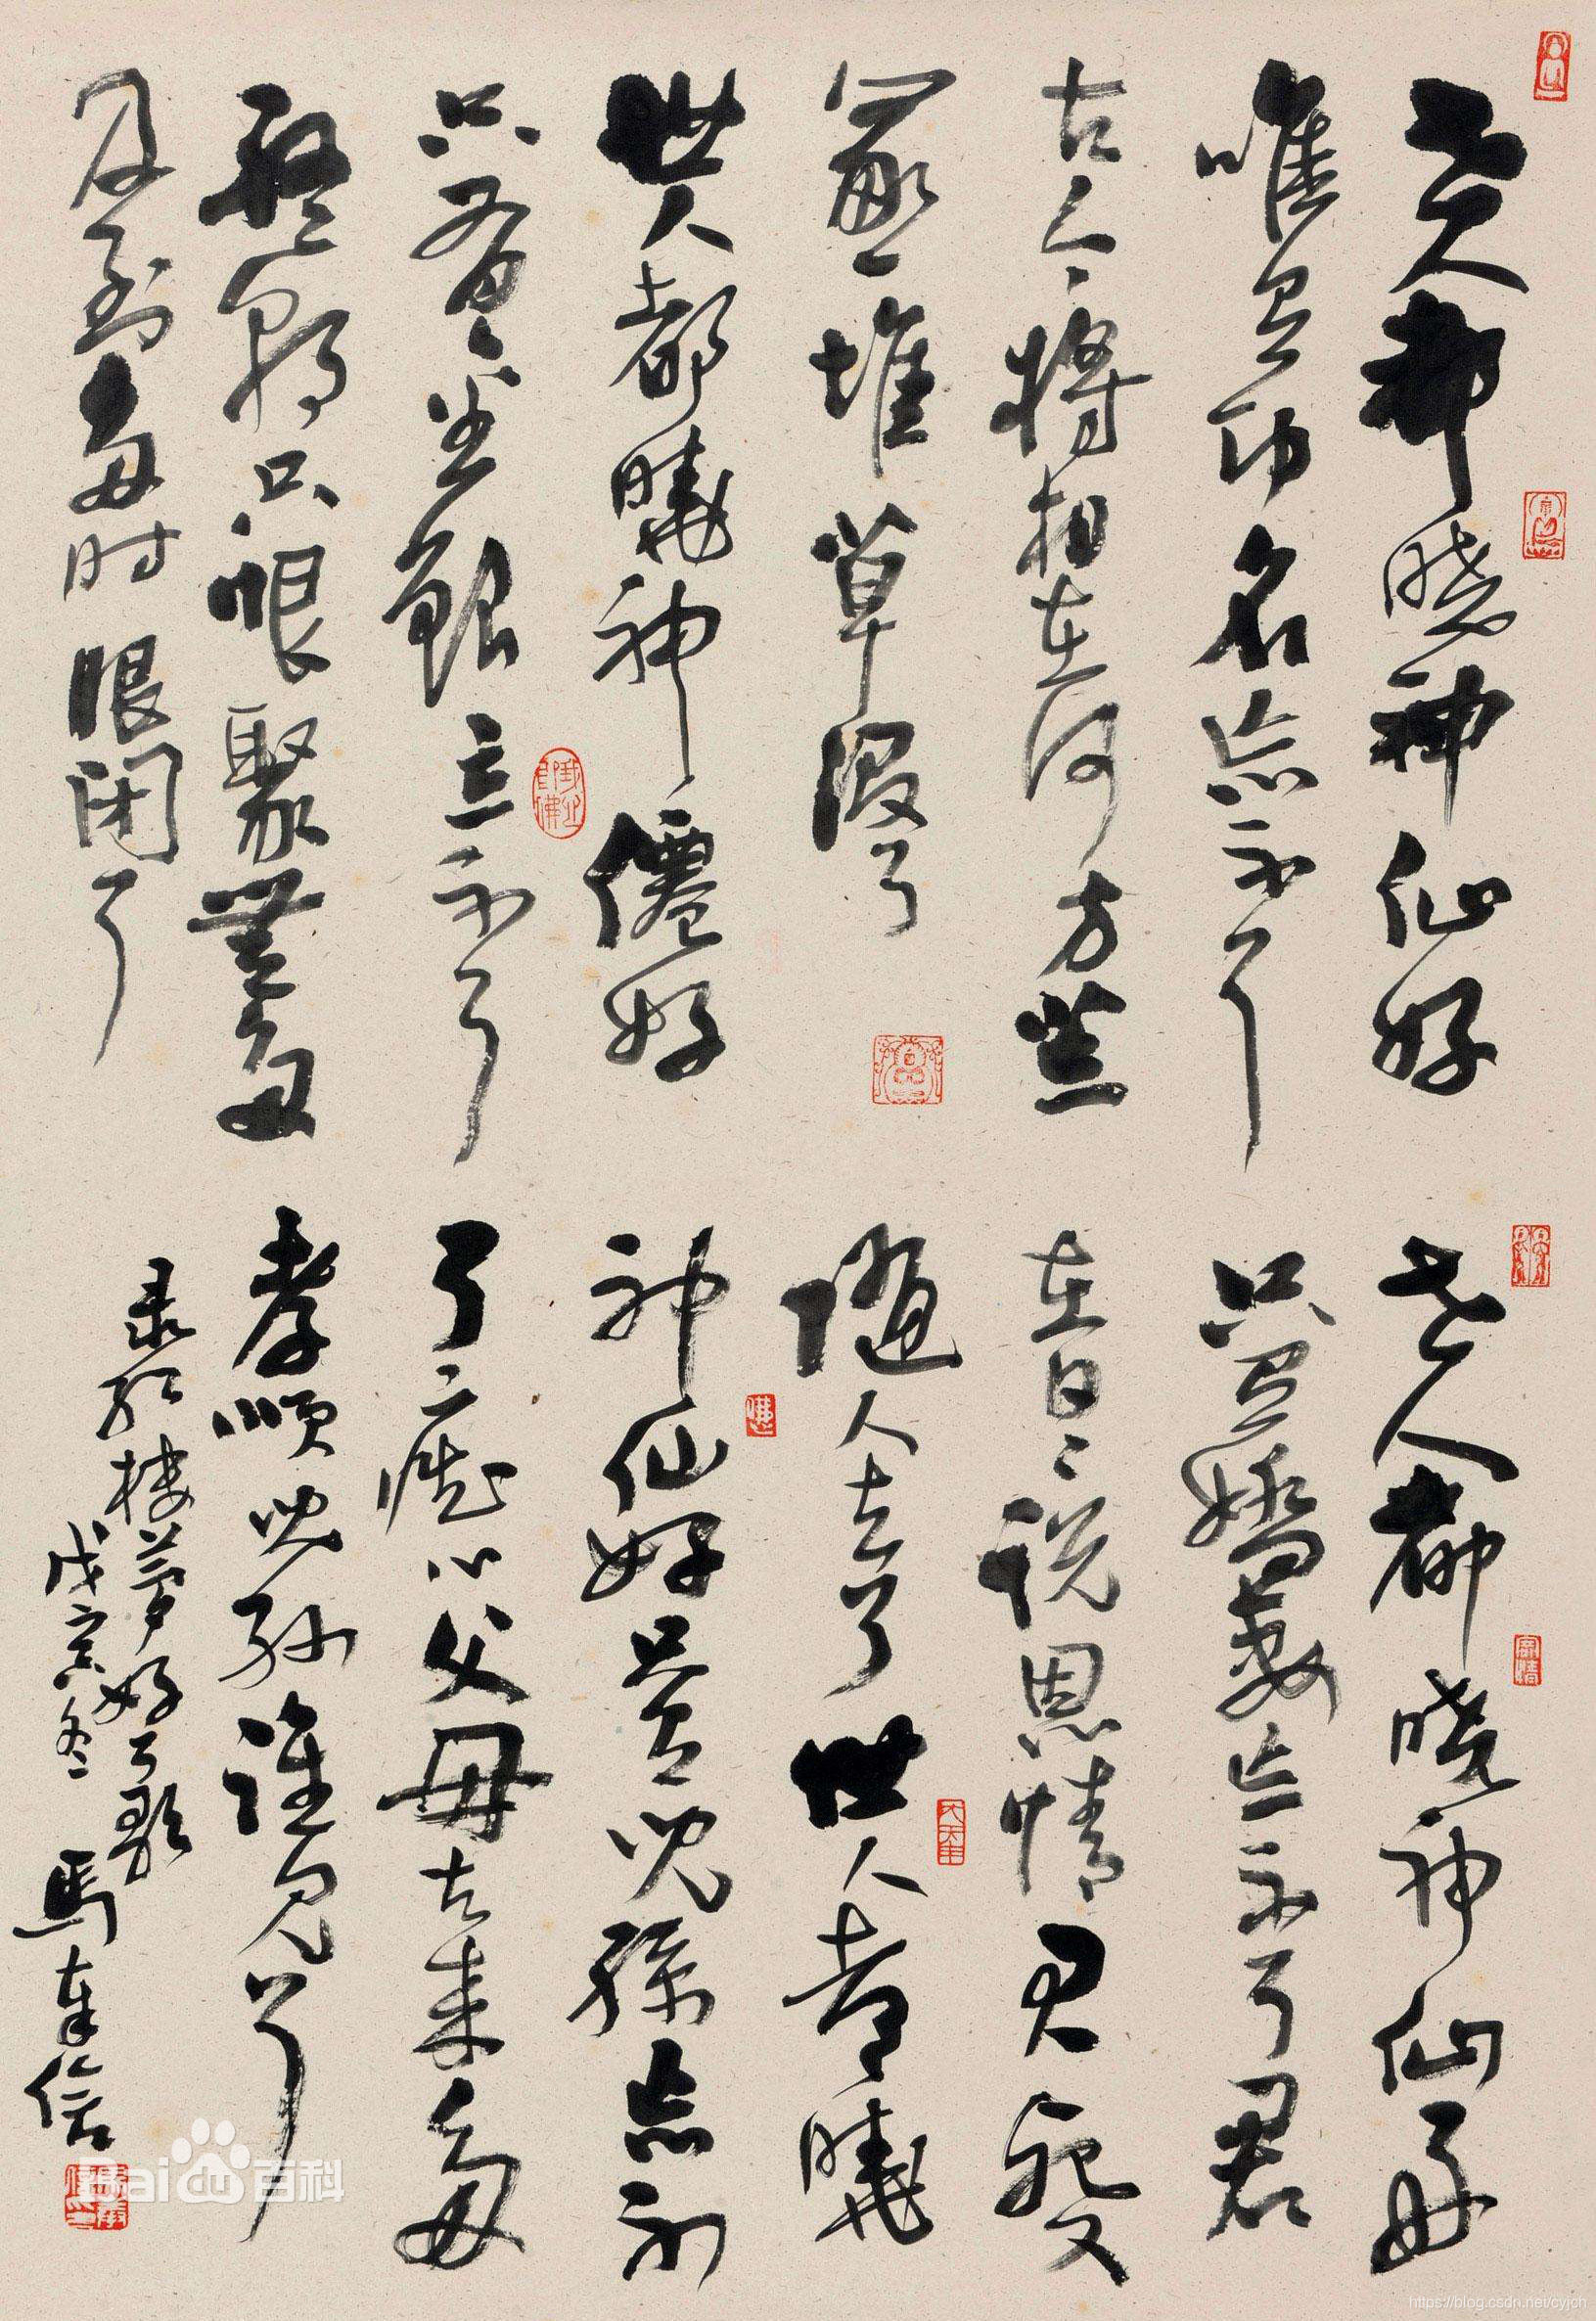 世人都晓神仙好
唯有功名忘不了
古今將相在何方荒
冢一堆草没了
世人都曉神僊好
只有金銀忘不了
终朝只恨聚無多
及到多时眼闭了
世人都晓神仙好
只有嬌妻忘不了君
在日日说恩情君死又
随人去了世人都曉
神仙好只有兒孫忘不
了痴心父母古来多
孝順兒孙谁见了
录红楼梦好了歌
戊寅冬 馬奉信
Baidu百科
https://blog.csdn.net/cyjch